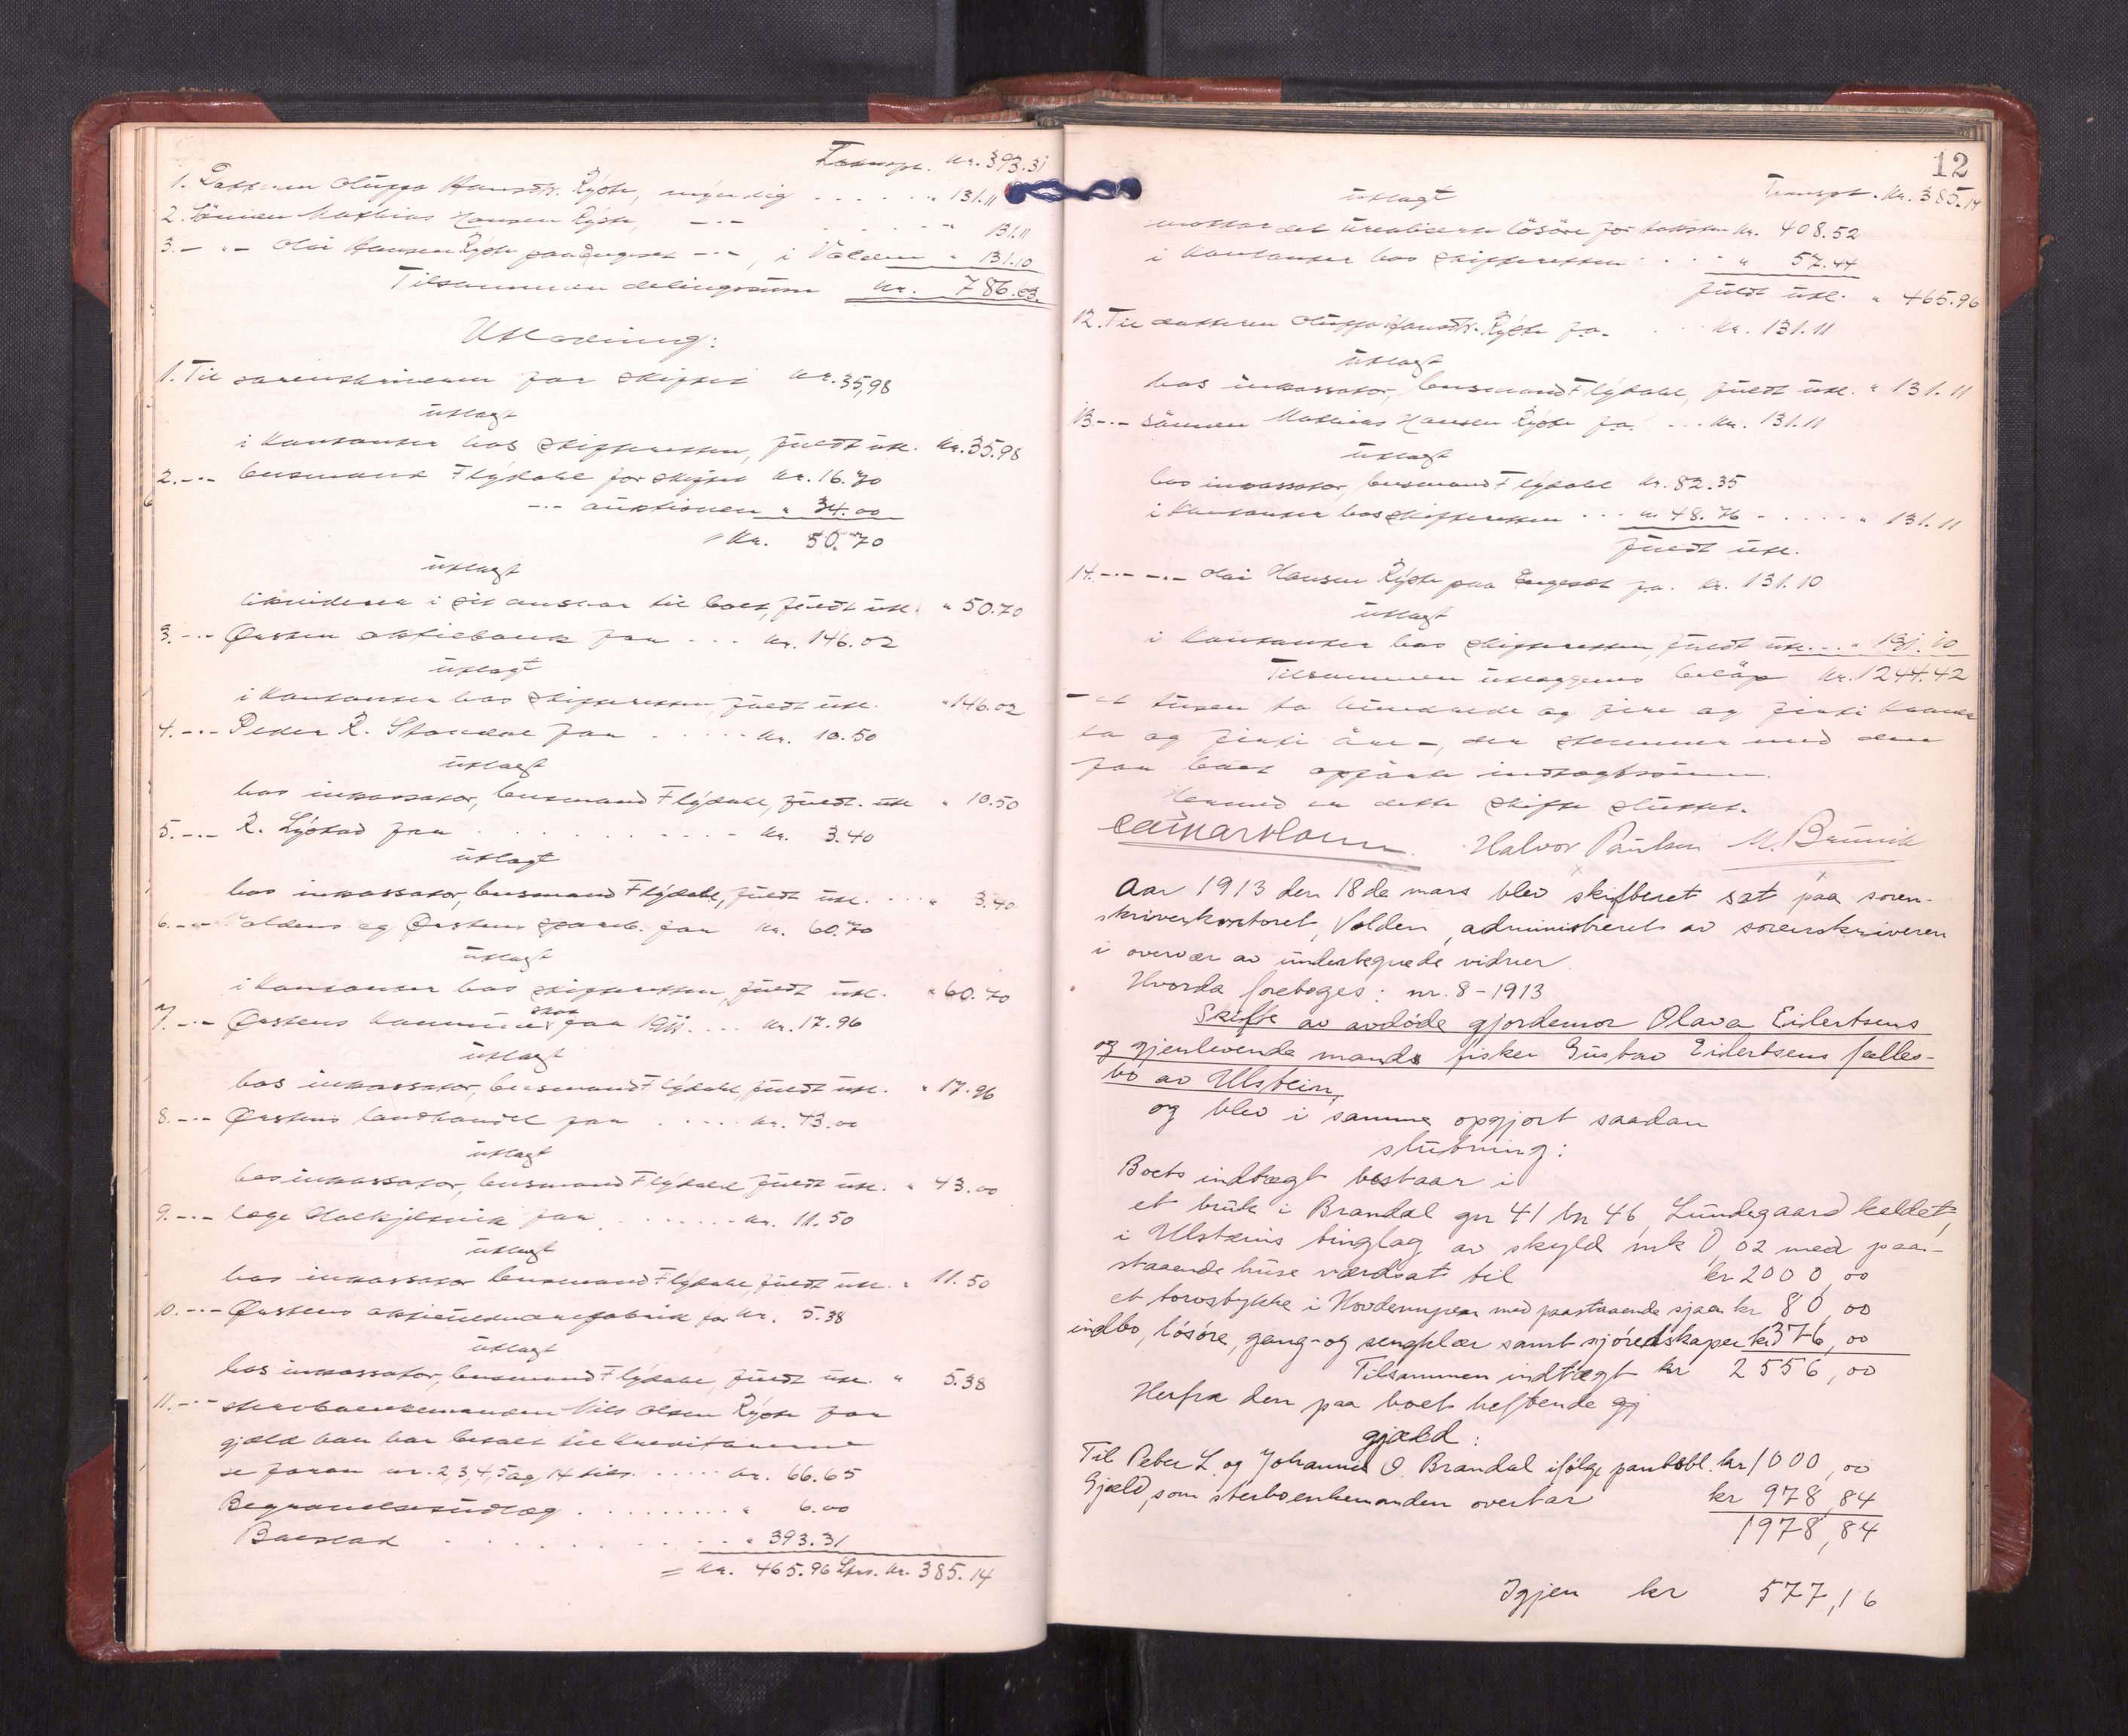 Transpt. kr. 393.31
1. Datteren Oluffa Hansdtr. Ryste, myndig . . . . . . " 131.11
2. Sønnen Mathias Hansen Ryste, -"- . . " 131.11
3. - " - Olai Hansen Ryste paa Engeset -"-, i Volden " 131.10
Tilsammen delingssum kr. 786.63.
Utlodning:
1. Til sorenskriveren for skiftet kr. 35,98
utlagt
i kontanter hos skifteretten, fuldt utl. kr. 35.98
2. -"- lensmand Fly​dahl for skiftet kr. 16.70
-"- auktionen " 34.00
= kr. 50.70
utlagt
likvideres i sit ansvar til boet, fuldt utl. " 50.70
3. -"- Ørsten aktiebank for . . . kr. 146.02
utlagt
i kontanter hos skifteretten, fuldt utl. " 146.02
4. -"- Peder R. Standal for . . . . . kr. 10.50
utlagt
hos inkassator, lensmand Flydahl, fuldt utl. " 10.50
5. -"- R. Lystad for . . . . . . . . kr. 3.40
utlagt
hos inkassator, lensmand Flydahl, fuldt utl. . . . " 3.40
6. -"- Voldens og Ørstens spareb. for kr. 60.70
utlagt
i kontanter hos skifteretten, fuldt utl. " 60.70
7. -"- Ørstens kommune skat for 1911 . . . . kr. 17.96
utlagt
hos inkassator, lensmand Flydahl, fuldt utl. " 17.96
8. -"- Ørstens landhandel for . . . . . kr. 43.00
utlagt
hos inkassator, lensmand Flydahl fuldt utl. " 43.00
9. -"- læge for . . . . . . . kr. 11.50
utlagt
hos inkassator lensmand Flydahl, fuldt utl. " 11.50
10. -"- Ørstens for kr. 5.38
utlagt
hos inkassator, lensmand Flydahl, fuldt utl. " 5.38
11. -"- sterboenkemanden Nils Olsen Ryste for
gjæld han har betalt til kreditorerne
se foran nr. 2, 3, 4, 5 og 14 tils. . . . . . kr. 66.65
Begravelsesutlæg . . . . . . . . . " 6.00
Boeslod . . . . . . . . . . . " 393.31
= kr. 465.96 Lprs. kr. 385.14
12
Transpt. kr. 385.14
utlagt
mottar det urealiserte løsøre for taksten kr. 408.52
i kontanter hos skifteretten . . . . . " 57.44
fuldt utl. " 465.96
12. Til datteren Oluffa Hansdtr. Ryste for . . . kr. 131.11
utlagt
hos inkassator, lensmand Flydahl, fuldt utl. " 131.11
13. -"- sønnen Mathias Hansen Ryste for . . . kr. 131.11
utlagt
hos inkassator, lensmand Flydahl kr. 82.35
i kontanter hos skifteretten . . . kr. 48.76 . . . . . " 131.11
fuldt utl.
14. -"- -"- Olai Hansen Ryste paa Engeset for kr. 131.10
utlagt
i kontanter hos skifteretten, fuldt utl. . . . " 131.10
Tilsammen utlæggenes beløp kr. 1244.42
- et tusen to hundrede og fire og firti kroner
to og firti øre -, der stemmer med den
for boet opførte indtægtssum.
Hermed er dette skifte sluttet.
Halvor Paulsen M. Brunvik
Aar 1913 den 18de mars blev skifteret sat paa soren-
skriverkontoret, Volden, administreret av sorenskriveren
i overvær av undertegnede vidner.
Hvorda foretoges: nr. 8 - 1913
Skifte av avdøde gjordemor Olava Eilertsens
og gjenlevende mands fisker Gustav Eilertsens fælles-
bo av Ulstein,
og blev i samme opgjort saadan
slutning:
Boets indtægt bestaar i
et bruk i Brandal gnr 41 bnr 46, Lundegaard kaldet,
i Ulsteins tinglag av skyld mk 0,02 med paa-
staaende huse værdsat til kr 2000,00
et torvstykke i Hovdemyren med paastaaende sjaa kr 80,00
indbo, løsøre, gang- og sengklær samt sjøredskaper kr 376,00
Tilsammen indtægt kr 2556,00
Herfra den paa boet heftende gj
gjæld:
Til Peter L. og Johannes O. Brandal ifølge pantobl. kr 1000,00
Gjæld, som sterboenkemanden overtar kr 978,84
1978,84
Igjen kr 577,16